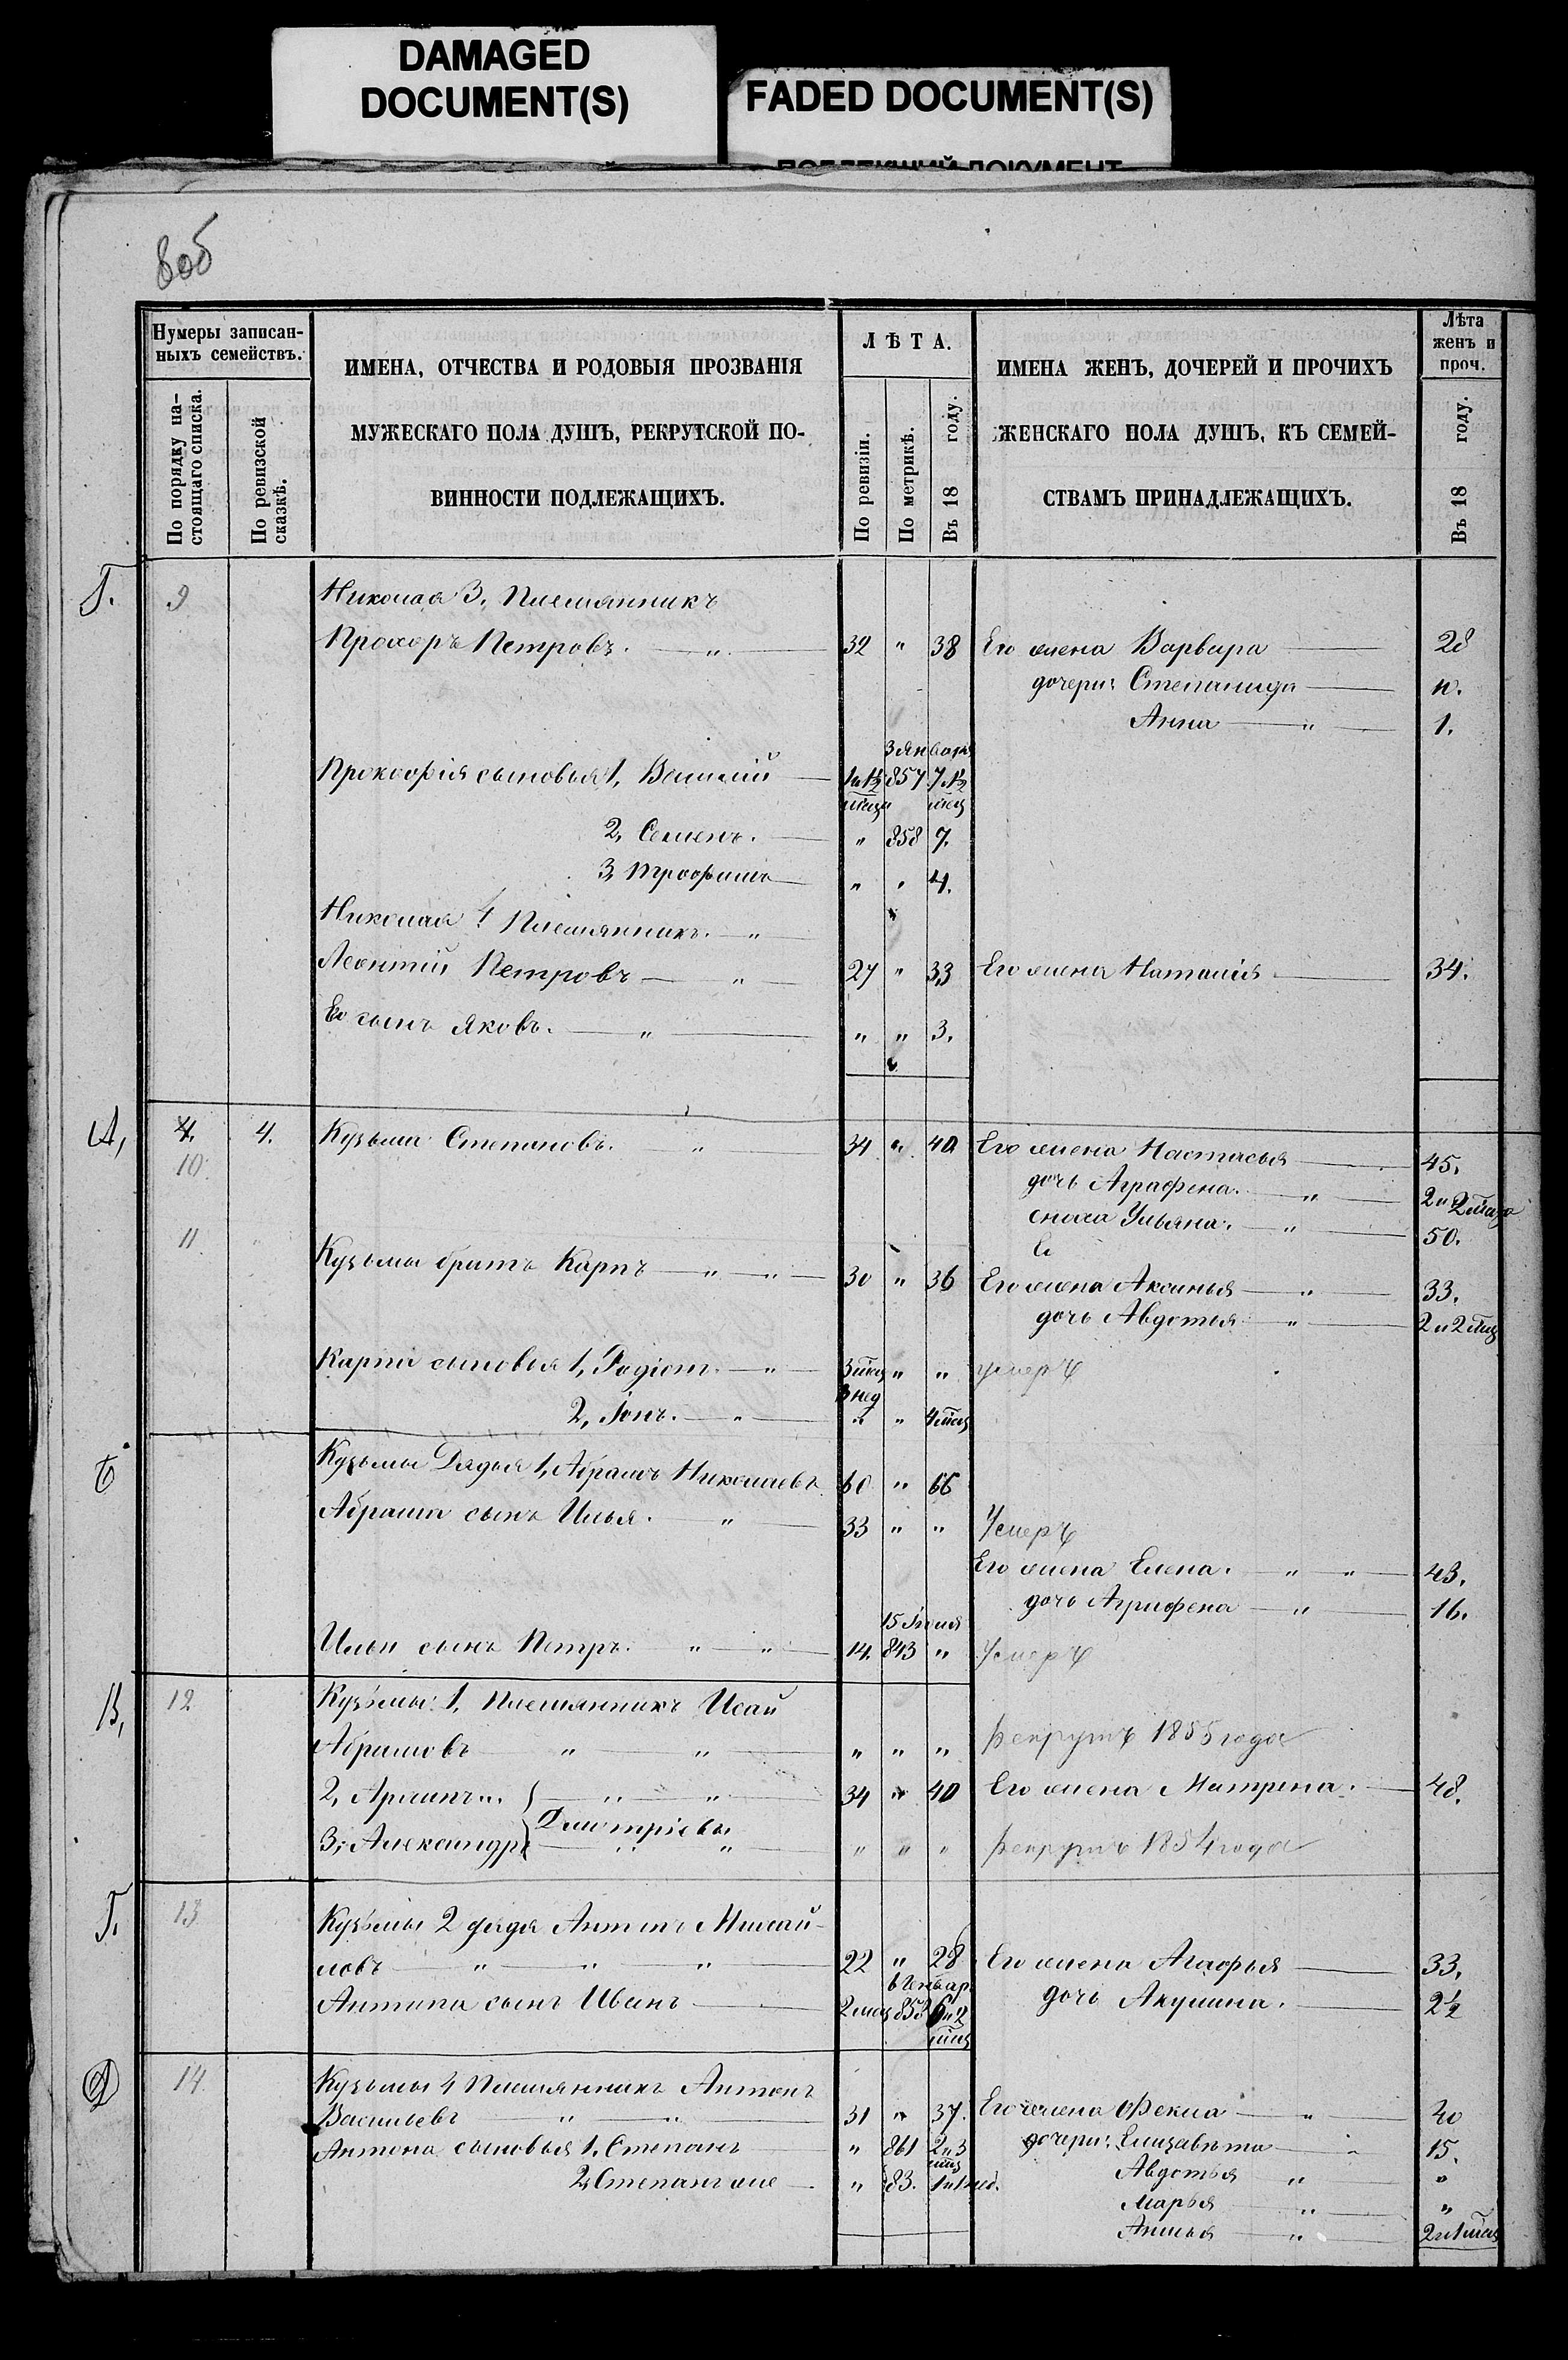 DAMAGED
DOCUMENT(S)
FADED DOCUMENT(S)
8об
Нумеры записан-
ныхъ семействъ.
По порядку на-
стоящаго списка.
По ревизской
сказкѣ.
ИМЕНА, ОТЧЕСТВА И РОДОВЫЯ ПРОЗВАНІЯ
МУЖЕСКАГО ПОЛА ДУШЪ, РЕКРУТСКОЙ ПО-
ВИННОСТИ ПОДЛЕЖАЩИХЪ.
ЛѢТА.
По ревизіи.
По метрикѣ.
Въ 18 году.
ИМЕНА ЖЕНЪ, ДОЧЕРЕЙ И ПРОЧИХЪ
ЖЕНСКАГО ПОЛА ДУШЪ, КЪ СЕМЕЙ-
СТВАМЪ ПРИНАДЛЕЖАЩИХЪ.
Лѣта
женъ и
проч.
Въ 18 году.
Г. 9 Николая 3, Племянникъ
Прохоръ Петровъ. — „ — 32 „ 38 Его жена Варвара — 28
дочери: Степанида —
Анна — „ — 1.
3 января
Прокофія сыновья 1, — 857
2, Семенъ. — „ 858 7.
3, Трофимъ — „ „ 4.
Николая 4 Племянникъ. — „ —
Леонтій Петровъ — „ — 27 „ 33 Его жена Наталія — 34.
Его сынъ Яковъ. — „ — „ „ 3.
А, 4. 4. Кузьма Степановъ. „ 34 „ 40 Его жена Настасья — 45.
10. дочь Аграфена. — „ —
сноха Ульяна. — „ — 50.
11. Кузьмы братъ Карпъ — „ — „ — 30 „ 36 Его жена Аксинья — „ — 33.
дочь Авдотья — „ — 2 и 2 мѣц
Карпа сыновья 1, Родіонъ. — „ — 3 мѣц „ „ умеръ
3 нед
2, Іонъ. — „ — „ „ 4 мѣц
Б Кузьмы Дядья 1, Абрамъ Николаевъ 60 „ 66
Абрама сынъ Илья. — „ — 33 „ „ Умеръ
Его жена Елена. — „ — „ — 43.
дочь Аграфена — „ — 16.
Ильи сынъ Петръ. „ — „ — 14. 843 „ Умеръ
В, 12 Кузьмы: 1, Племянникъ Исай
Абрамовъ — „ — „ — „ „ „ рекрутъ 1855 года
2, — „ — „ — 34 „ 40 Его жена Матрена. — 48.
Дмитріевы
3, Александръ — „ — „ — „ „ „ рекрутъ 1854 года
Г. 13 Кузьмы 2 дядя Антипъ Михай-
ловъ — „ — „ — „ — 22 „ 28 Его жена Агафья — 33.
6 Генвар.
Антипа сынъ Иванъ — 2 мѣц 858 6 и 2 мѣц дочь Акулина. — 2½
Д 14 Кузьмы 4 Племянникъ Антонъ
Васильевъ — „ — „ — 31 „ 37. Его жена Фекла — „ — 40
Антона сыновья 1, Степанъ — „ 861 2 и 3 мѣц дочери: Елизавета — „ 15.
2, Степанъ же — „ 83. Авдотья „ — „
Марья — „ — „
— „ — 2 и 1 мѣц